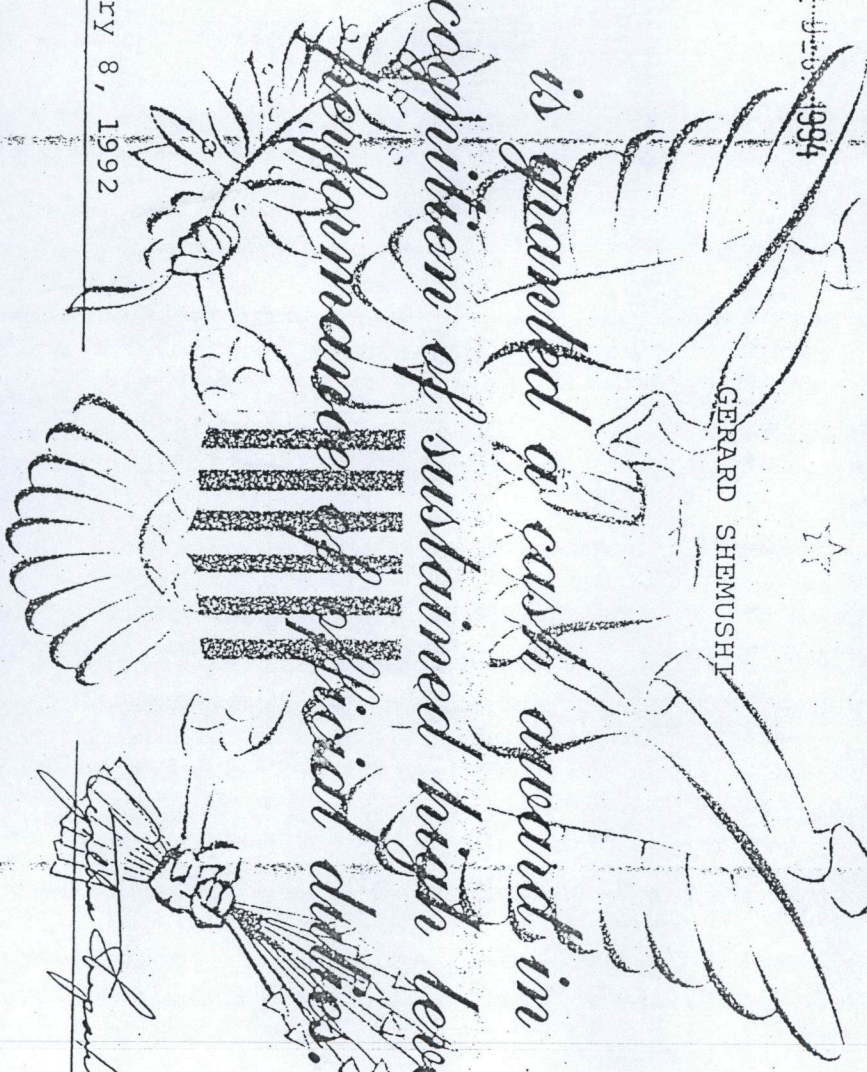 1994
GERARD SHEMUSHI
is granted a cash award in
cognition of sustained high lev
performance of official duties.
ry 8, 1992